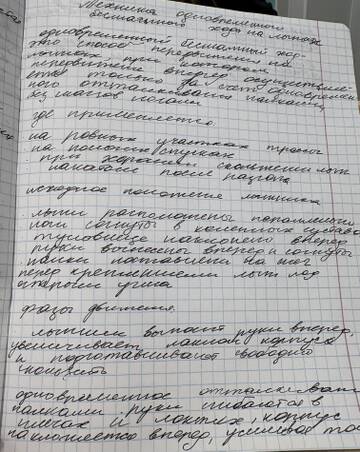 Техника одновременного
бесшажного хода на лыжах
одновременный бесшажный ход-
это способ передвижения на
лыжах при котором
передвижение вперед осуществляе-
ется только за счёт одновремен-
ного отталкивания палками,
без шагов ногами
где применяется
на ровных участках трассы
на пологих спусках
при хорошем скольжении лыж
накатом после разгона
исходное положение лыжника
лыжи расположены параллельно
ноги согнуты в коленных суставах
туловище наклонено вперед
руки вынесены вперед и согнуты
палки поставлены на снег
перед креплениями лыж под
острым углом
фазы движения.
лыжник выносит руки вперед,
увеличивает наклон корпуса
и подготавливает свободно
одновременное отталкивание
палками. руки сгибаются в
плечах и локтях, корпус
наклоняется вперед,